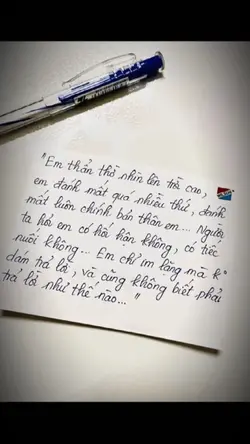 "Em thẫn thờ nhìn lên trời cao,
em đánh mất quá nhiều thứ, đánh
mất luôn chính bản thân em... Người
ta hỏi em có hối hận không, có tiếc
nuối không... Em chỉ im lặng mà k°
dám trả lời, và cũng không biết phải
trả lời như thế nào..."